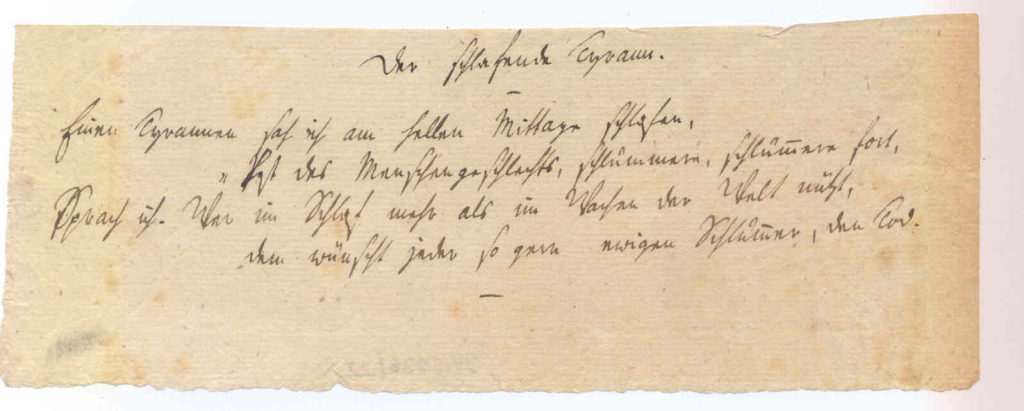 Der schlafende Tyrann.
Einen Tyrannen sah ich am hellen Mittage schlafen,
„Pest des Menschengeschlechts, schlummere, schlum̄ere fort,
Sprach ich. Wer im Schlaf mehr als im Wachen der Welt nützt,
dem wünscht jeder so gern ewigen Schlum̄er, den Tod.